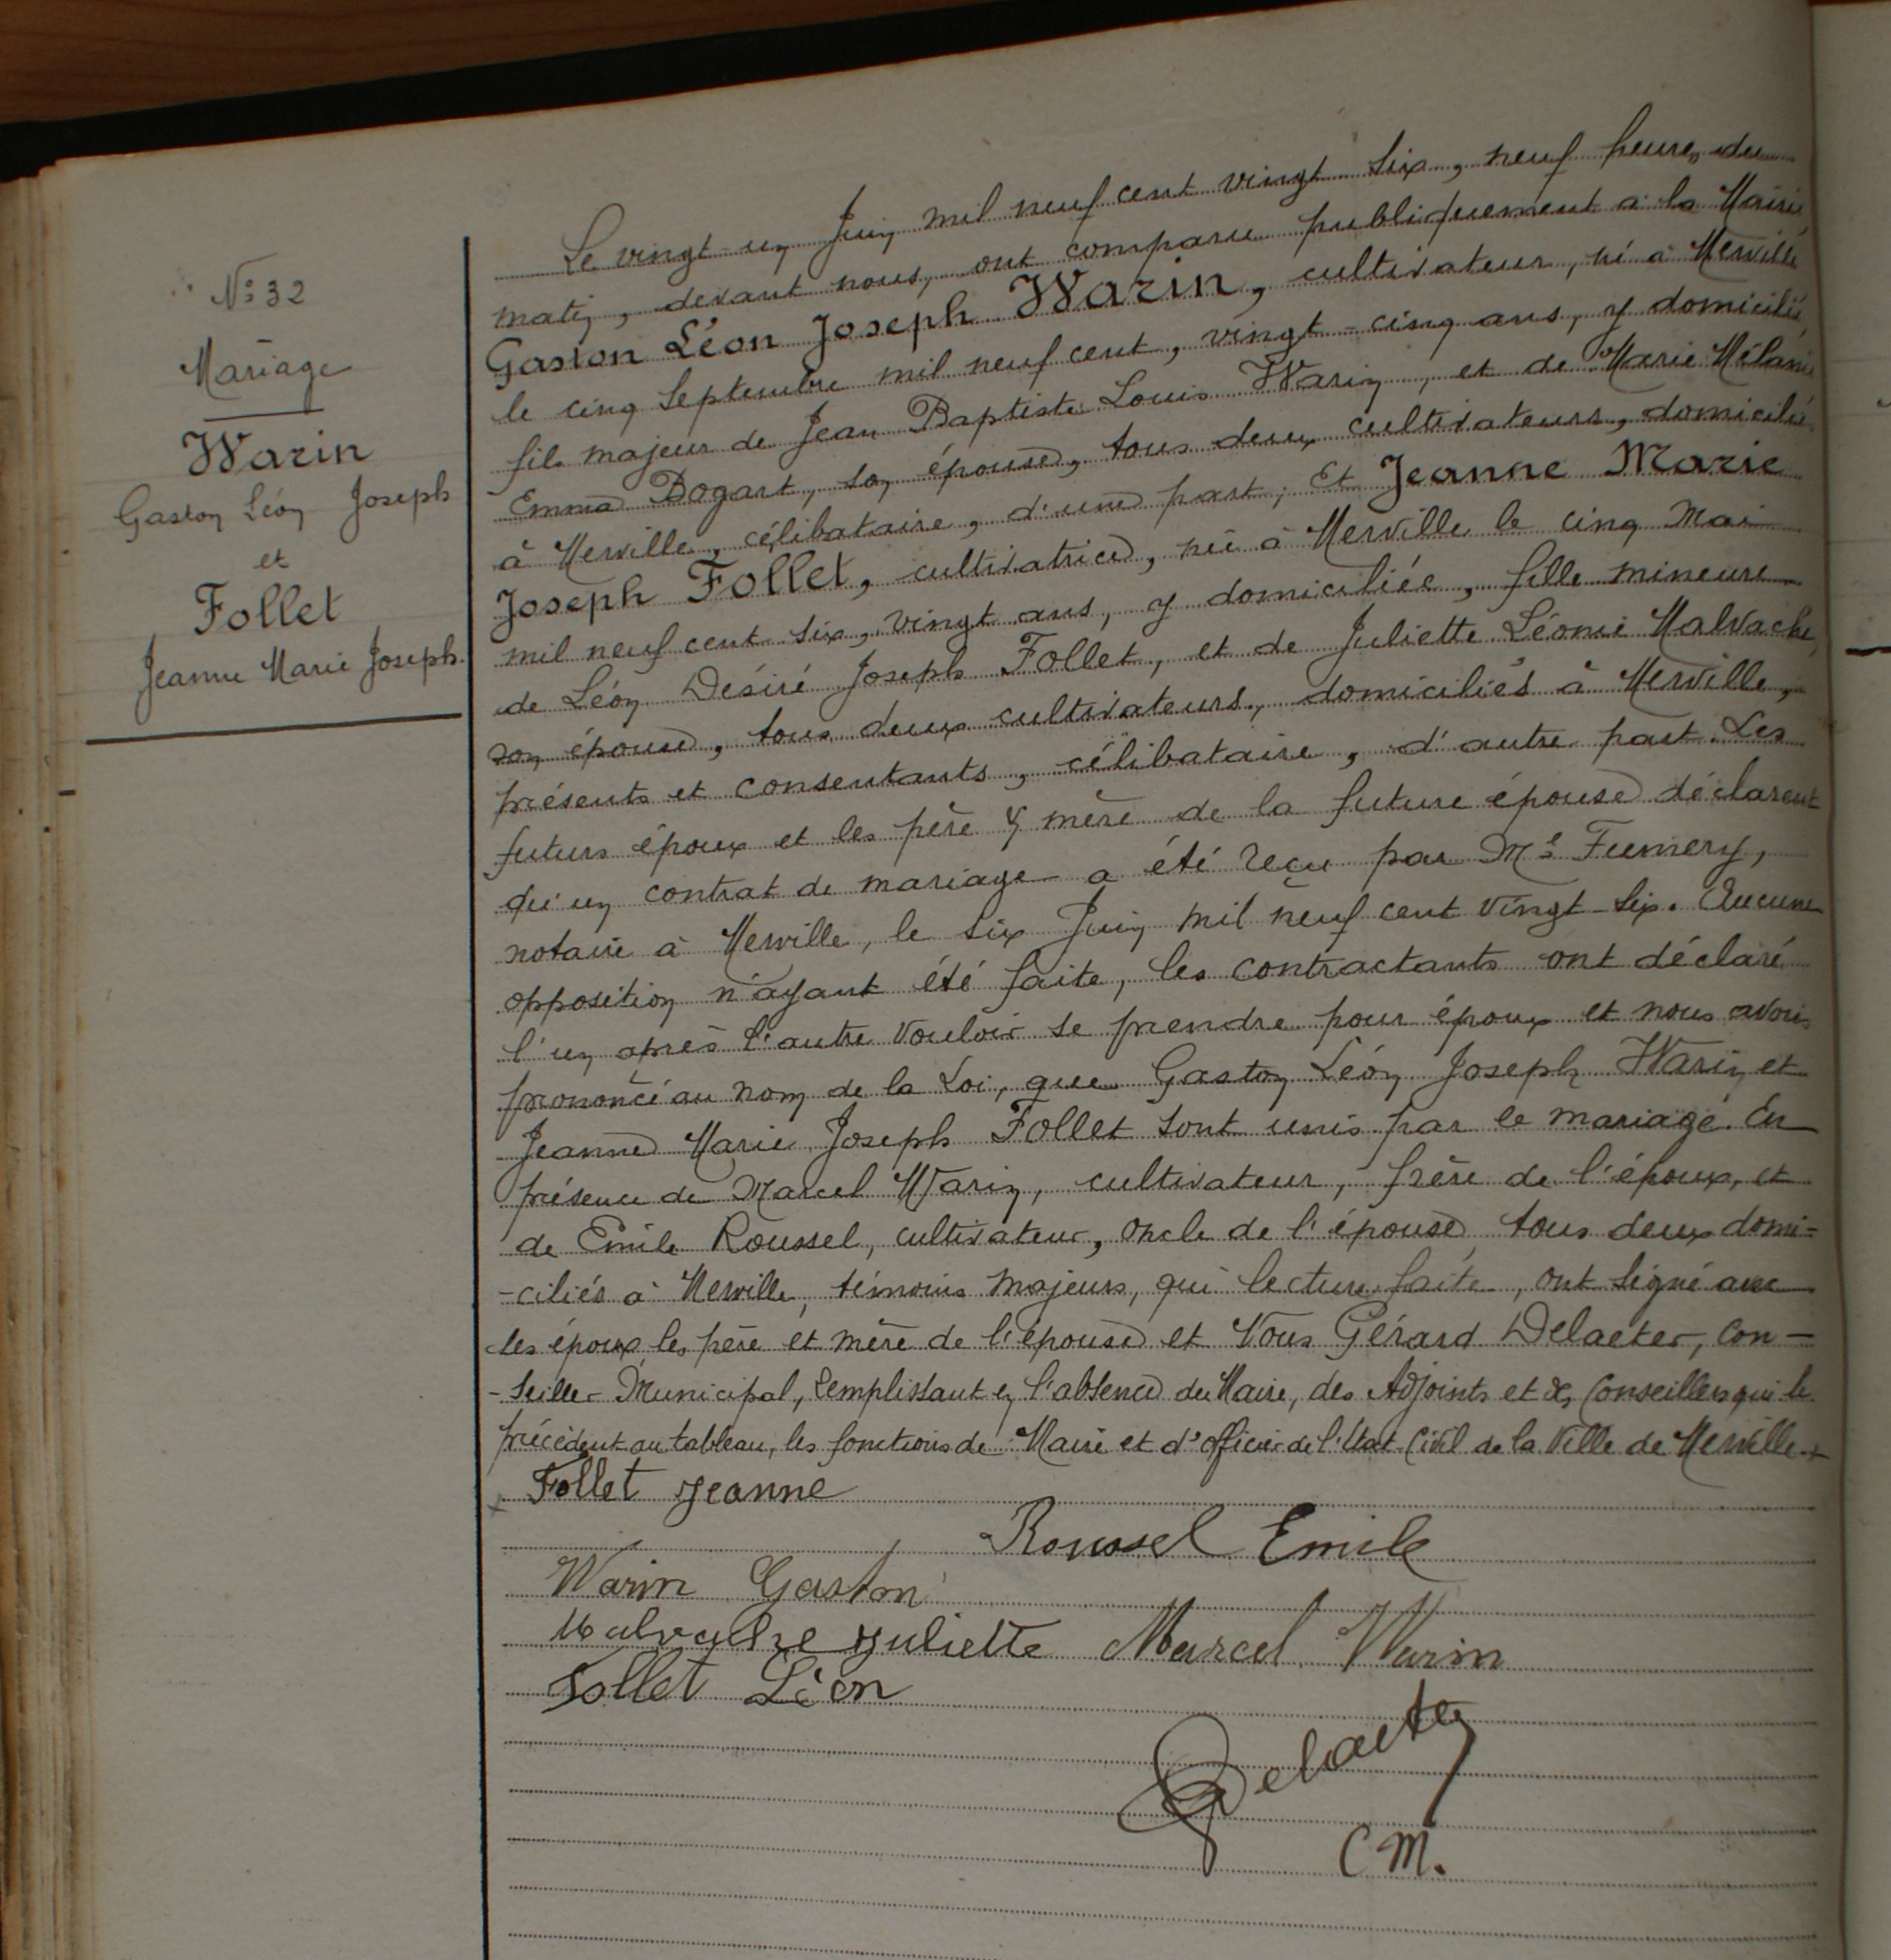 N° 32
Mariage
Warin
Gaston Léon Joseph
et
Follet
Jeanne Marie Joseph.
Le vingt-un Juin mil neuf cent vingt six, neuf heures du
matin, devant nous, ont comparu publiquement à la Mairie
Gaston Léon Joseph Warin, cultivateur, né à Merville
le cinq Septembre mil neuf cent, vingt-cinq ans, y domicilié,
fils majeur de Jean Baptiste Louis Warin, et de Marie Mélanie
Emma Bogart, son épouse, tous deux cultivateurs, domiciliés
à Merville, célibataire, d'une part; Et Jeanne Marie
Joseph Follet, cultivatrice, née à Merville le cinq Mai
mil neuf cent six, vingt ans, y domiciliée, fille mineure
de Léon Désiré Joseph Follet, et de Juliette Léonie Malvache,
son épouse, tous deux cultivateurs, domiciliés à Merville,
présents et consentants, célibataire, d'autre part. Les
futurs époux et les père & mère de la future épouse déclarent
qu'un contrat de mariage a été reçu par Me Fumery,
notaire à Merville, le six Juin mil neuf cent vingt-six. Aucune
opposition n'ayant été faite, les contractants ont déclaré
l'un après l'autre vouloir se prendre pour époux et nous avons
prononcé au nom de la Loi, que Gaston Léon Joseph Warin et
Jeanne Marie Joseph Follet sont unis par le mariage. En
présence de Marcel Warin, cultivateur, frère de l'époux, et
de Emile Roussel, cultivateur, oncle de l'épouse, tous deux domi-
-ciliés à Merville, témoins majeurs, qui lecture faite, ont signé avec
les époux, les père et mère de l'épouse et Nous Gérard Delaeter, Con-
-seiller Municipal, remplissant en l'absence du Maire, des Adjoints et des Conseillers qui le
précèdent au tableau, les fonctions de Maire et d'officier de l'Etat-Civil de la Ville de Merville.
Follet Jeanne
Roussel Emile
Warin Gaston
Malvache Juliette Marcel Warin
Follet Léon
Delaeter
CM.